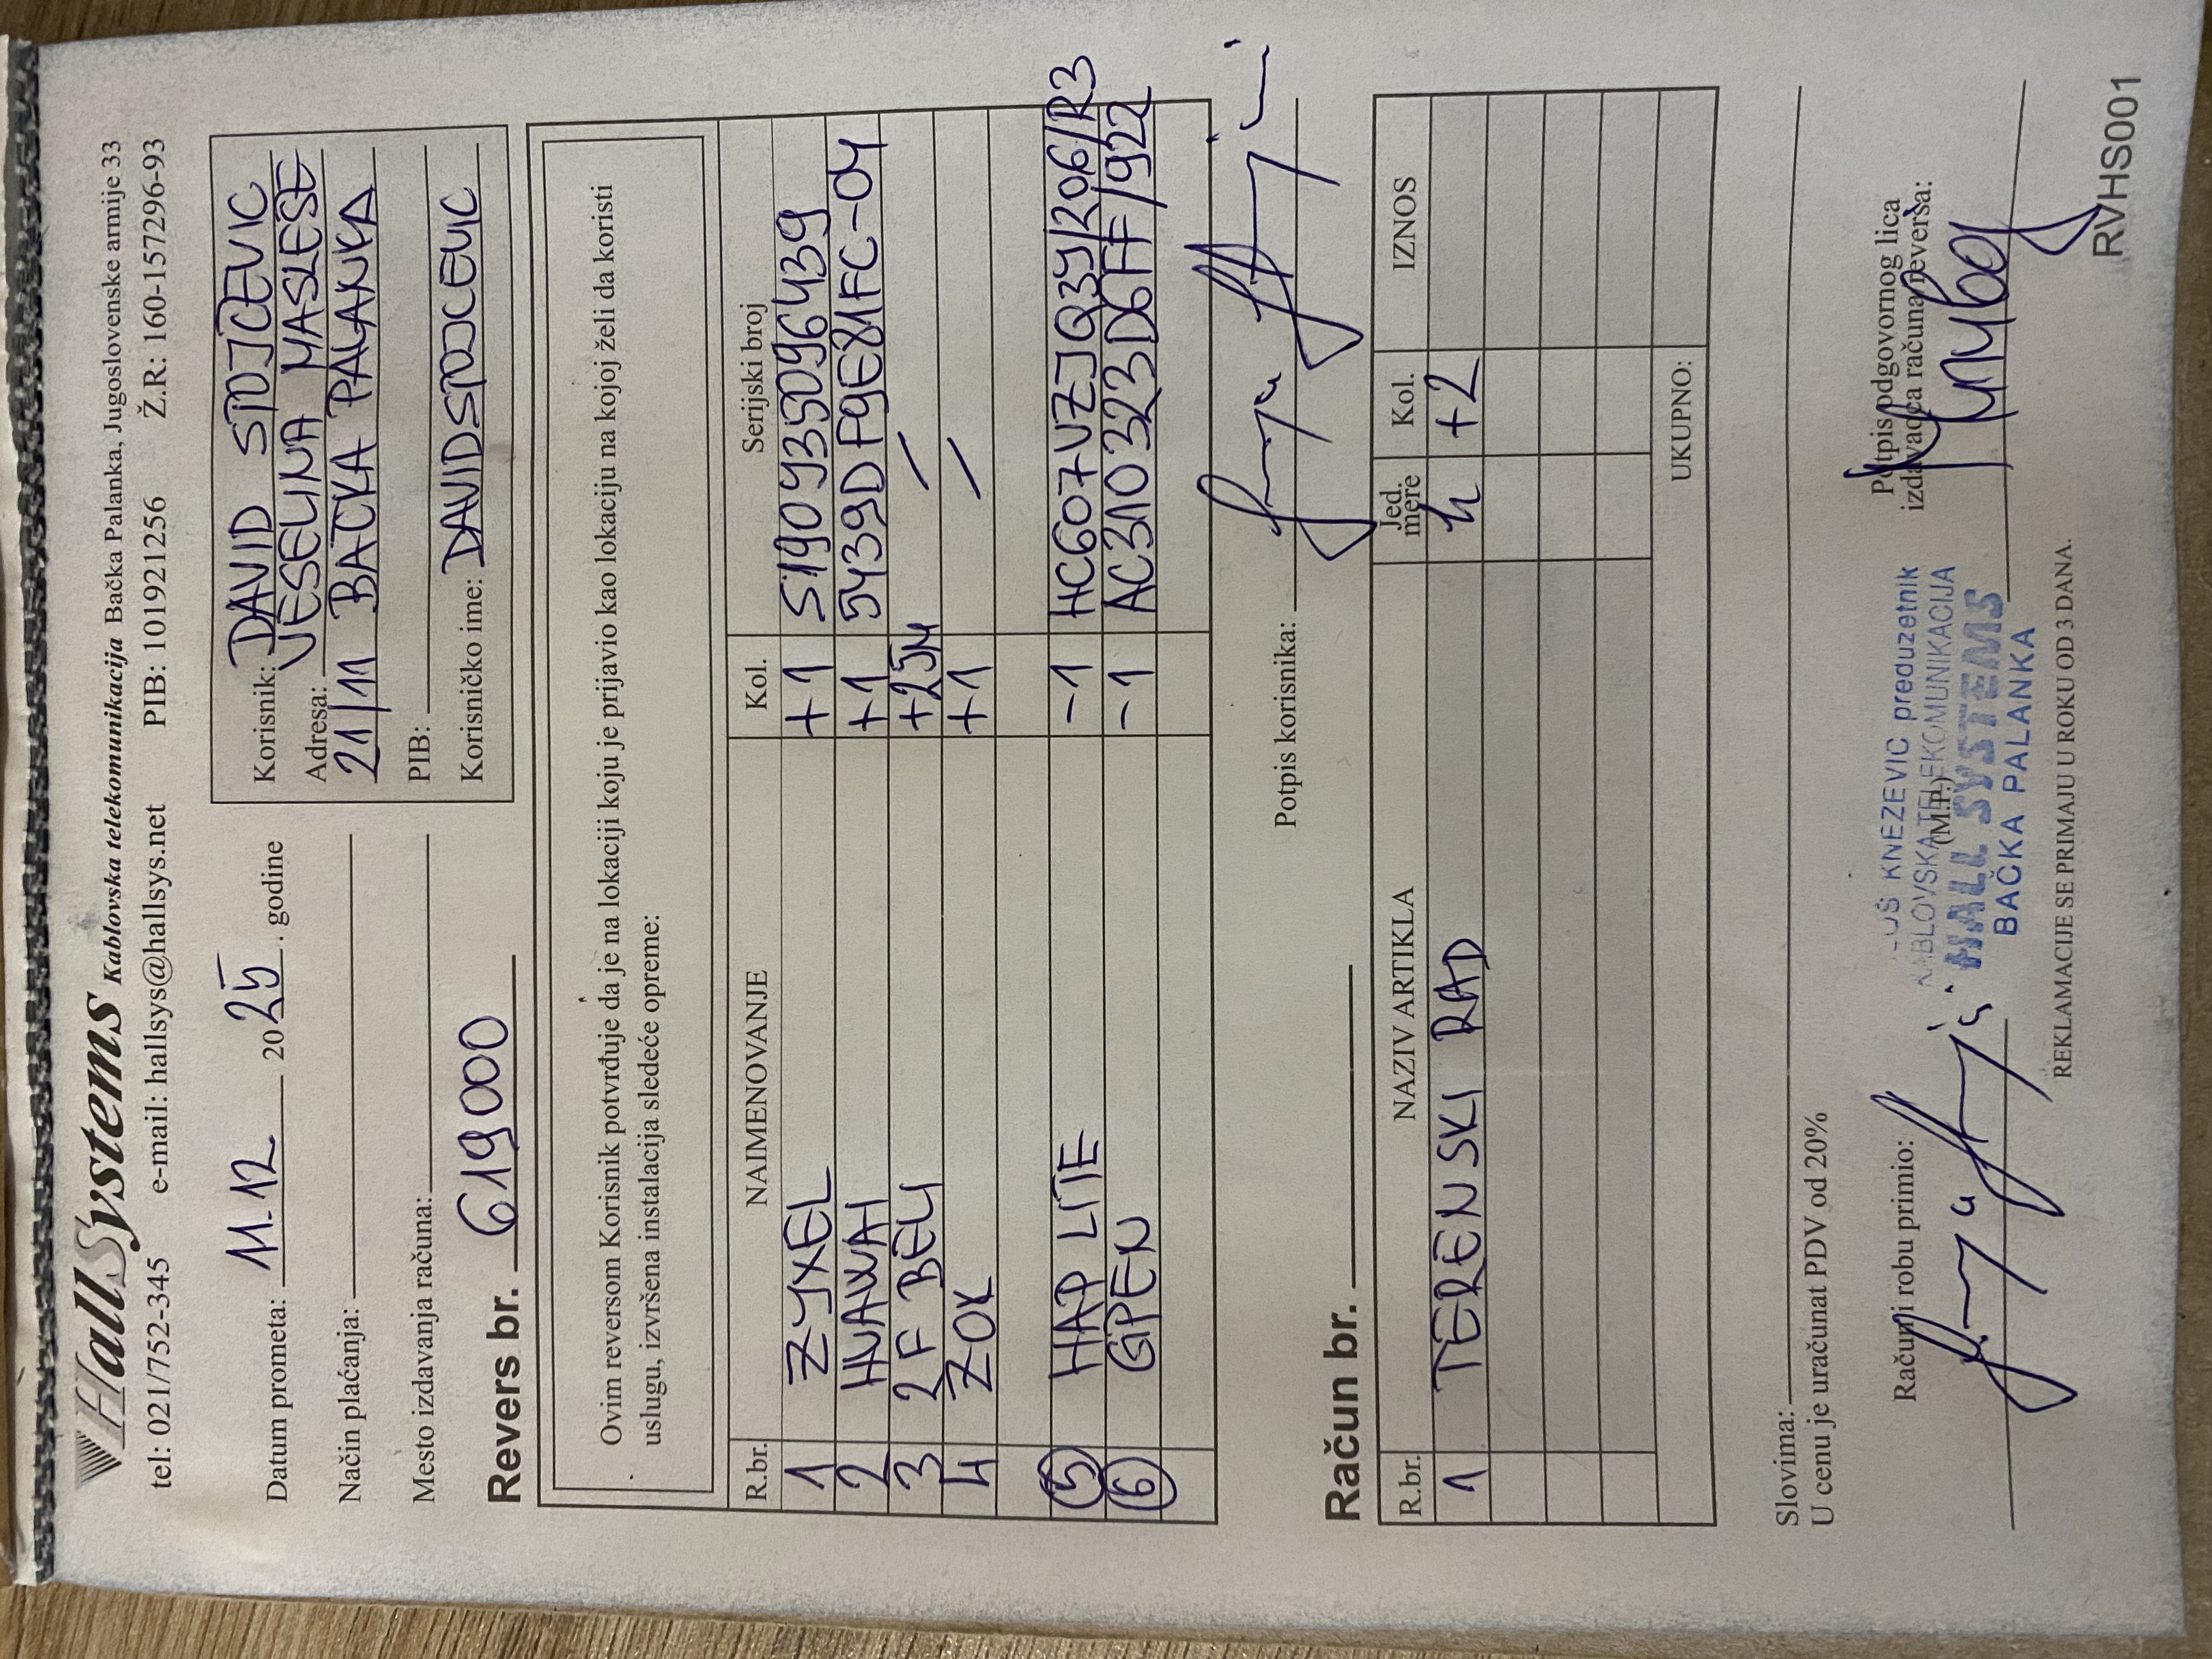 HallSystems Kablovska telekomunikacija Bačka Palanka, Jugoslovenske armije 33
tel: 021/752-345 e-mail: hallsys@hallsys.net PIB: 101921256 Ž.R: 160-157296-93
Datum prometa: 11.12 2025. godine
Način plaćanja:
Mesto izdavanja računa:
Revers br. 619000
Korisnik: DAVID STOJCEVIC
Adresa: VESELINA MASLESE
21/11 BACKA PALANKA
PIB:
Korisničko ime: DAVIDSTOJCEVIC
Ovim reversom Korisnik potvrđuje da je na lokaciji koju je prijavio kao lokaciju na kojoj želi da koristi
uslugu, izvršena instalacija sledeće opreme:
R.br. NAIMENOVANJE Kol. Serijski broj
1 ZYXEL +1 S190Y35096439
2 HUAWAI +1 5439DF9E81FC-04
3 2F BELI +2JM /
4 ZOK +1 /
5 HAP LITE -1 HC607VZJQ3Y/206/R3
6 GPEN -1 AC310323D6FF/922
Potpis korisnika:
Račun br.
R.br. NAZIV ARTIKLA Jed. mere Kol. IZNOS
1 TERENSKI RAD h +2
UKUPNO:
Slovima:
U cenu je uračunat PDV od 20%
Račun i robu primio:
(M.P.)
Potpis odgovornog lica
izdavaoca računa/reversa:
KNEZEVIC preduzetnik
KABLOVSKA TELEKOMUNIKACIJA
HALL SYSTEMS
BAČKA PALANKA
REKLAMACIJE SE PRIMAJU U ROKU OD 3 DANA.
RVHS001